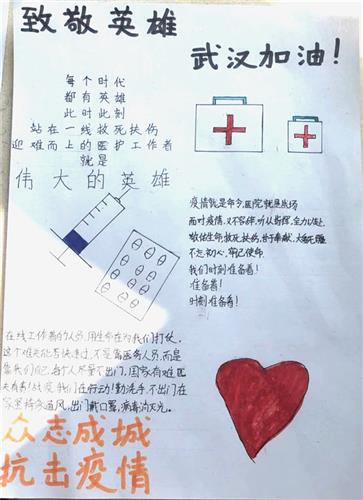 致敬英雄
武汉加油！
每个时代
都有英雄
此时此刻
站在一线救死扶伤
迎难而上的医护工作者
就是
伟大的英雄
疫情就是命令，医院就是战场
面对疫情，义不容辞，听从指挥，全力以赴
敬佑生命，救死扶伤，甘于奉献，大爱无疆
不忘初心，牢记使命
我们时刻准备着！
准备着！
时刻准备着！
在线工作者的人员，用生命在为我们打仗。
这个难关能否快速过，不是靠医务人员，而是
靠我们自己，每个人尽量不出门，国家有难，匹
夫有责！战疫我们在行动！勤洗手，不出门在
家里持续通风，出门戴口罩，病毒消灭光。
众志成城
抗击疫情